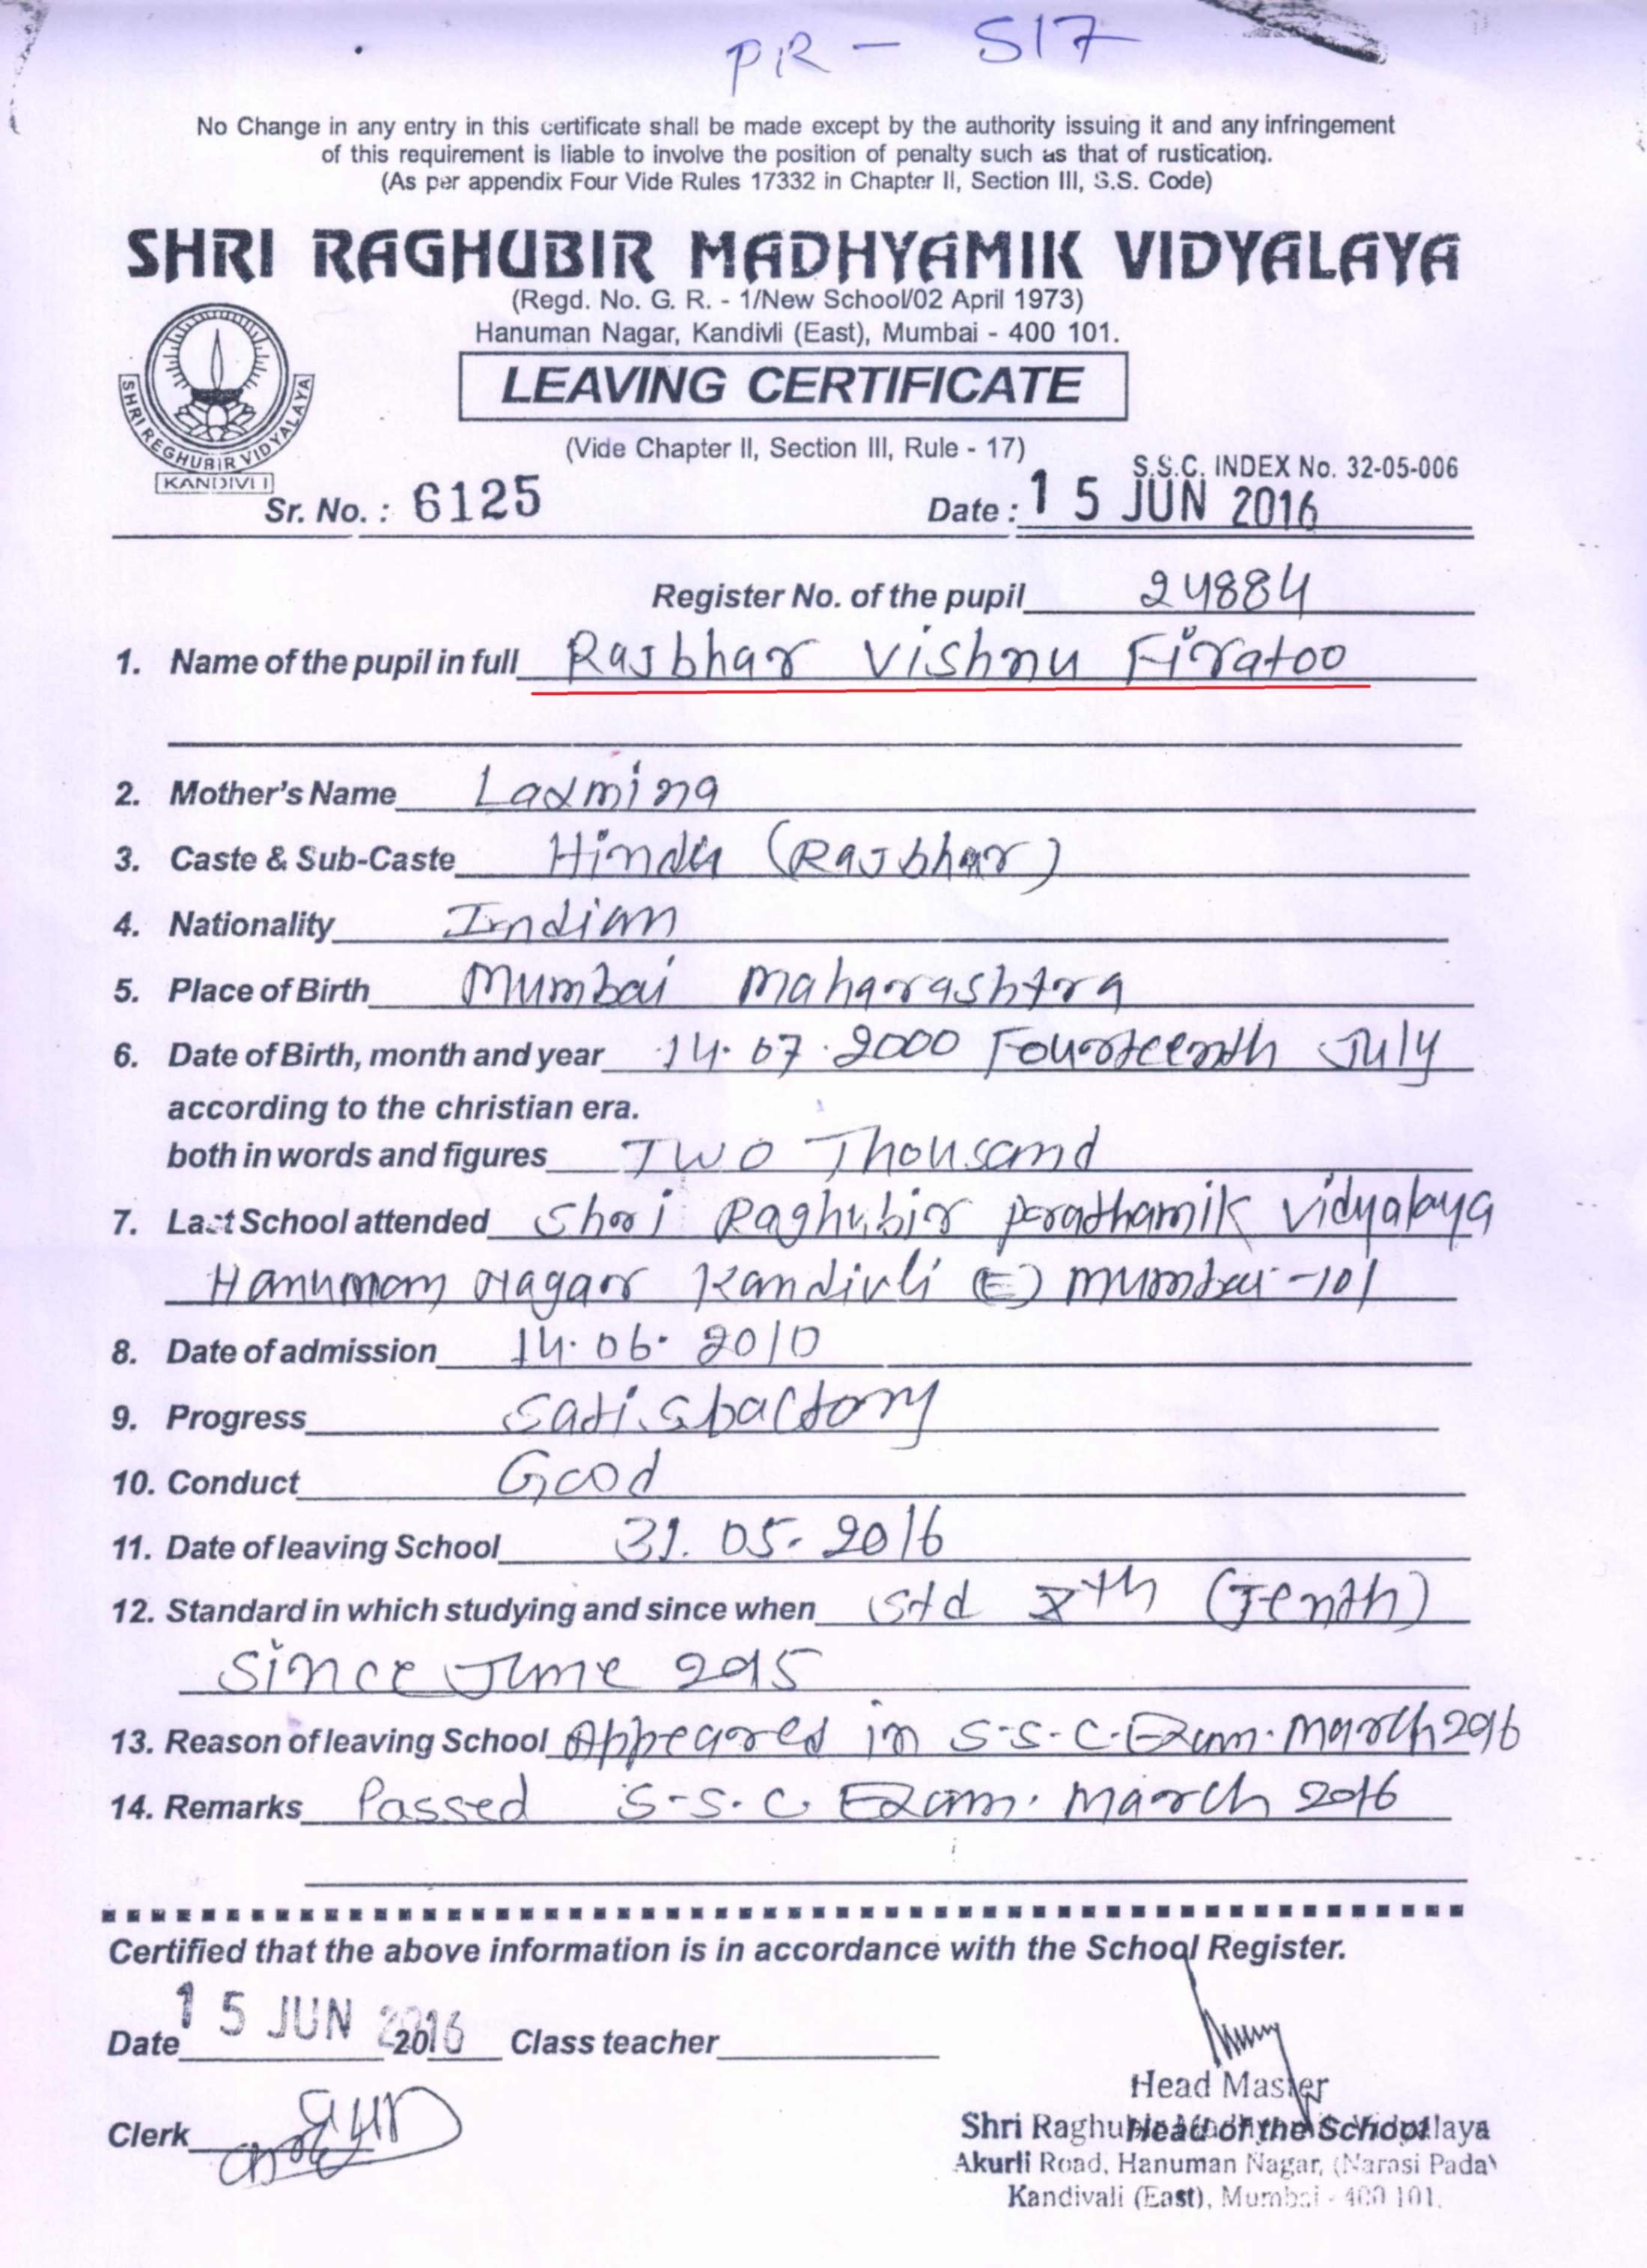 PR - 517
No Change in any entry in this certificate shall be made except by the authority issuing it and any infringement
of this requirement is liable to involve the position of penalty such as that of rustication.
(As per appendix Four Vide Rules 17332 in Chapter II, Section III, S.S. Code)
SHRI RAGHUBIR MADHYAMIK VIDYALAYA
(Regd. No. G. R. - 1/New School/02 April 1973)
Hanuman Nagar, Kandivli (East), Mumbai - 400 101.
LEAVING CERTIFICATE
(Vide Chapter II, Section III, Rule - 17)
SHRI REGHUBIR VIDYALAYA
KANDIVLI
S.S.C. INDEX No. 32-05-006
Sr. No. : 6125 Date : 15 JUN 2016
Register No. of the pupil 24884
1. Name of the pupil in full Rajbhar Vishnu Firatoo
2. Mother's Name Laxmina
3. Caste & Sub-Caste Hindu (Rajbhar)
4. Nationality Indian
5. Place of Birth Mumbai Maharashtra
6. Date of Birth, month and year 14.07.2000 Fourteenth July
according to the christian era.
both in words and figures Two Thousand
7. Last School attended Shri Raghubir Prathamik Vidyalaya
Hanuman Nagar Kandivli (E) Mumbai-101
8. Date of admission 14.06.2010
9. Progress Satisfactory
10. Conduct Good
11. Date of leaving School 31.05.2016
12. Standard in which studying and since when Std Xth (Tenth)
Since June 2015
13. Reason of leaving School Appeared in S-S-C-Exam. March 2016
14. Remarks Passed S-S.C. Exam. March 2016
Certified that the above information is in accordance with the School Register.
Date 15 JUN 2016 Class teacher
Clerk
Head Master
Head of the School
Shri Raghubir Madhyamik Vidyalaya
Akurli Road, Hanuman Nagar, (Narasi Pada)
Kandivali (East), Mumbai - 400 101.